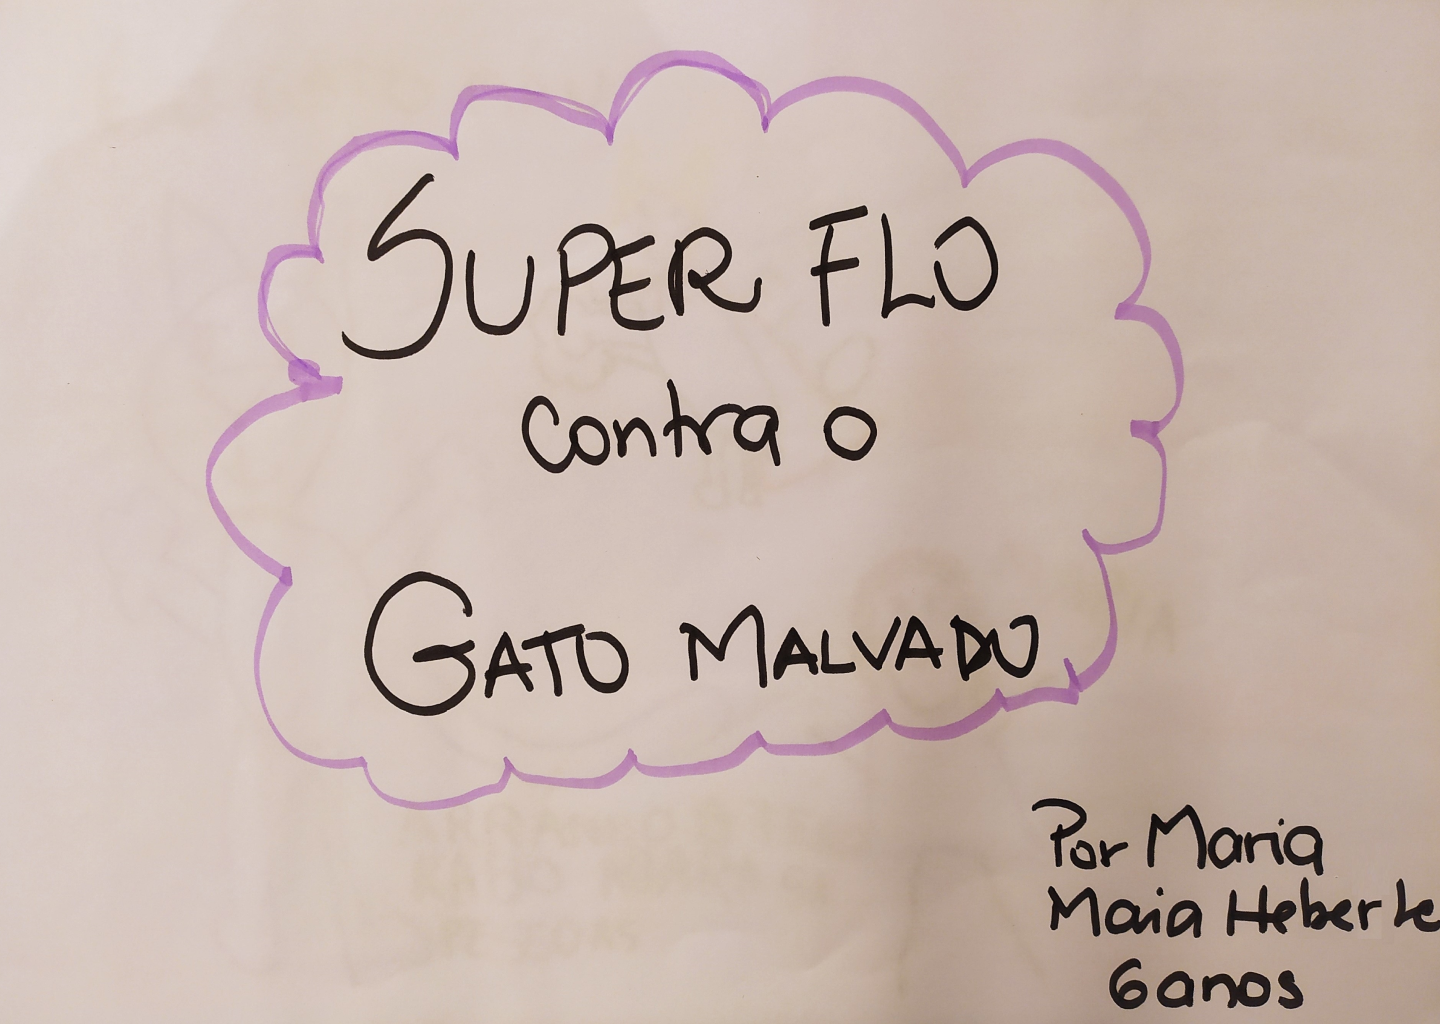 SUPER FLO
contra o
GATO MALVADO
Por Maria
Maia Heberle
6 anos